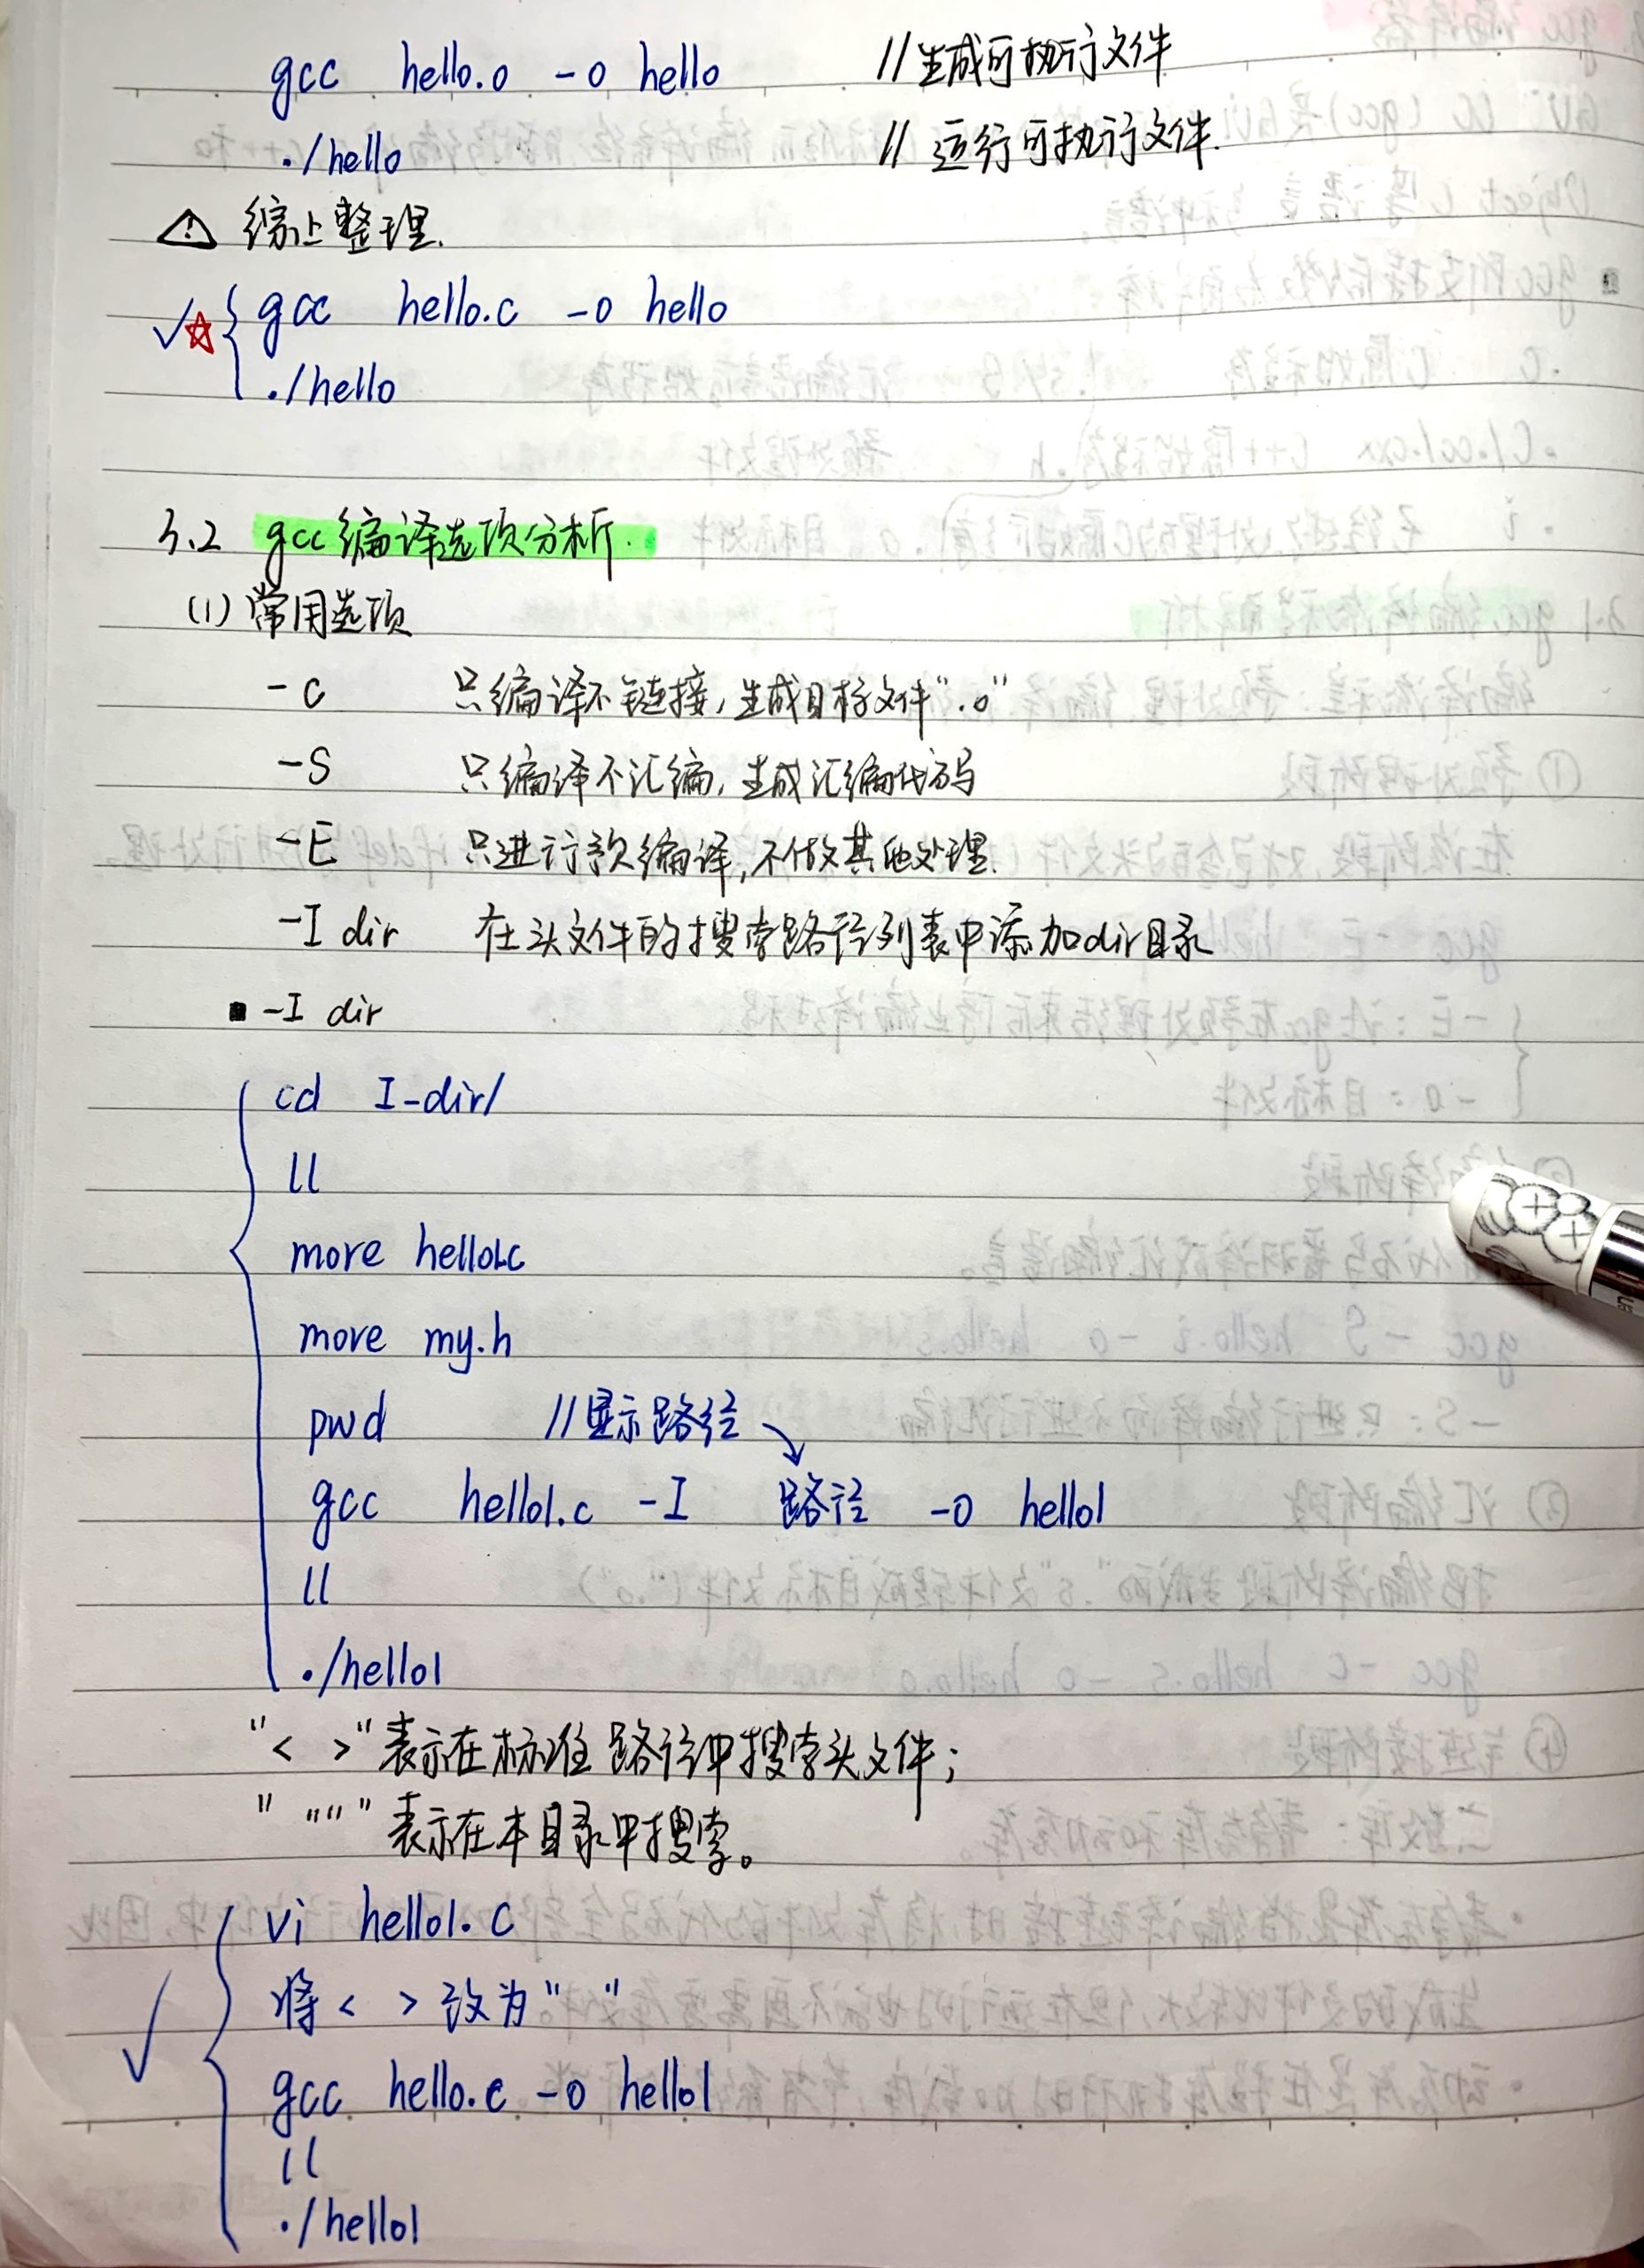 gcc hello.o -o hello //生成可执行文件
./hello //运行可执行文件.
综上整理.
gcc hello.c -o hello
./hello
3.2 gcc编译选项分析.
(1) 常用选项
-c 只编译不链接,生成目标文件".o"
-S 只编译不汇编,生成汇编代码
-E 只进行预编译,不做其他处理.
-I dir 在头文件的搜索路径列表中添加dir目录
-I dir
cd I-dir/
ll
more hello1.c
more my.h
pwd //显示路径
gcc hello1.c -I 路径 -o hello1
ll
./hello1
"< >"表示在标准路径中搜索头文件;
" "" "表示在本目录中搜索。
vi hello1.c
将< >改为" "
gcc hello.c -o hello1
ll
./hello1